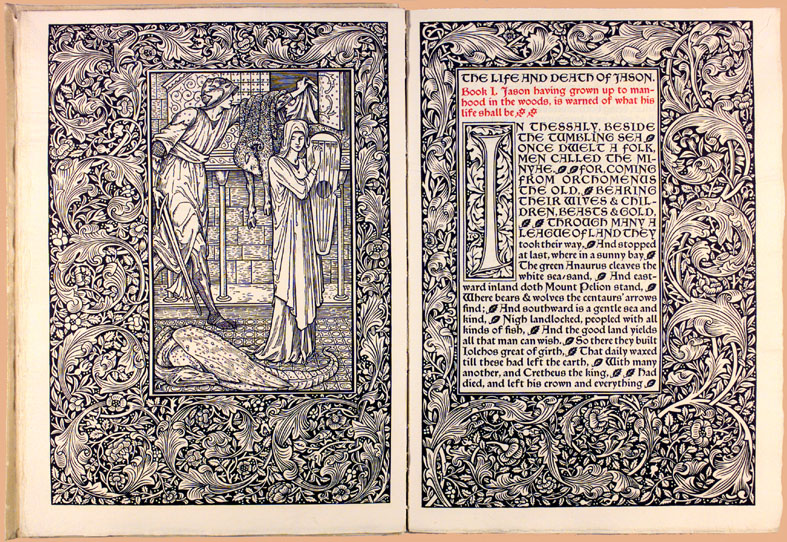 THE LIFE AND DEATH OF JASON.
Book I. Jason having grown up to man-
hood in the woods, is warned of what his
life shall be
IN THESSALY, BESIDE
THE TUMBLING SEA,
ONCE DWELT A FOLK,
MEN CALLED THE MI-
NYAE, FOR, COMING
FROM ORCHOMENUS
THE OLD, BEARING
THEIR WIVES & CHIL-
DREN, BEASTS & GOLD,
THROUGH MANY A
LEAGUE OF LAND THEY
took their way, And stopped
at last, where in a sunny bay
The green Anaurus cleaves the
white sea-sand, And east-
ward inland doth Mount Pelion stand,
Where bears & wolves the centaurs' arrows
find; And southward is a gentle sea and
kind, Nigh landlocked, peopled with all
kinds of fish, And the good land yields
all that man can wish. So there they built
Iolchos great of girth, That daily waxed
till these had left the earth, With many
another, and Cretheus the king, Had
died, and left his crown and everything